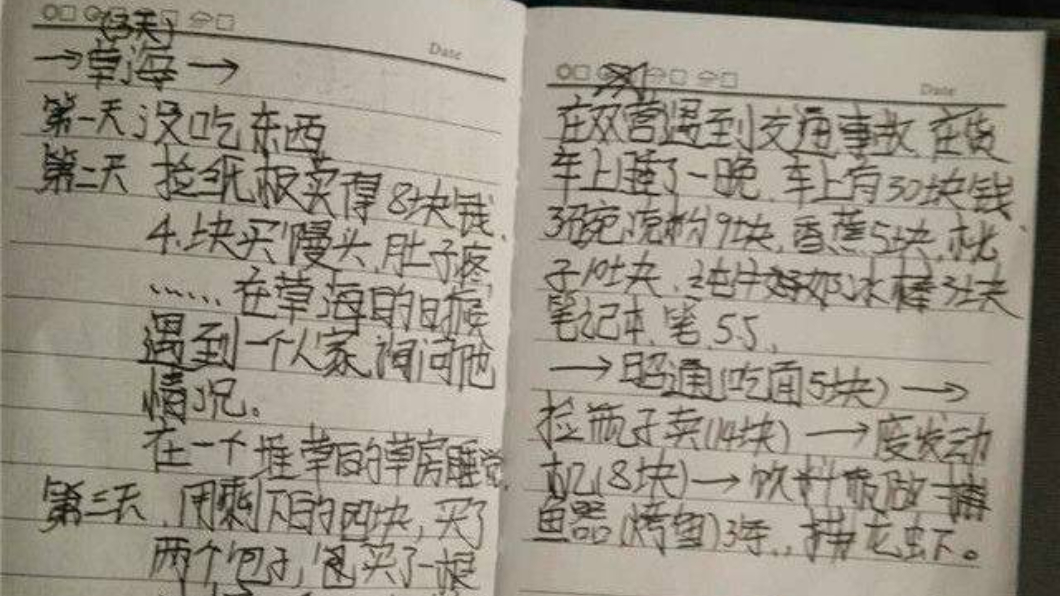 (3天)
Date
→草海→
第一天没吃东西
第二天 捡纸板卖得8块钱.
4.块买馒头,肚子疼,
……在草海的时候
遇到一个人家,询问他
情况。
在一个堆草的草房睡觉.
第三天,用剩下的四块,买了
两个包子,买了一根
Date
在双营遇到交通事故,在货
车上睡了一晚,车上有30块钱
3碗凉粉9块,香蕉5块,桃
子10块,纯牛奶冰棒3块
笔记本,笔,5.5,
→昭通(吃面5块)→
捡瓶子卖(14块)→废发动
机(8块)→饮料瓶做捕
鱼器(烤鱼)3条,捞花虾。